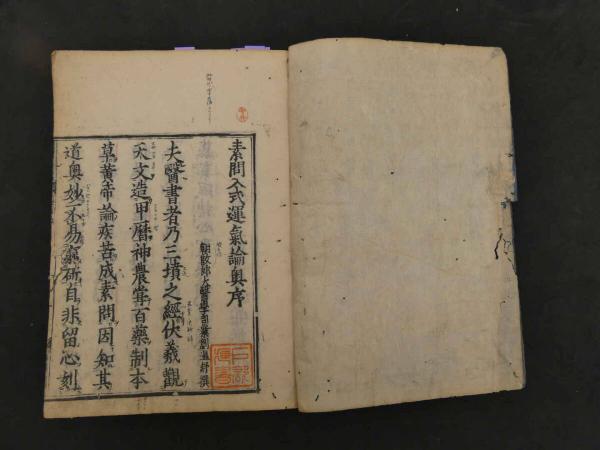 素問入式運氣論奧序
朝散郎太醫學司業劉溫舒撰
夫醫書者乃三墳之經伏羲觀
天文造甲曆神農嘗百藥制本
草黃帝論疾苦成素問因知其
道奧妙不易窮研自非留心刻